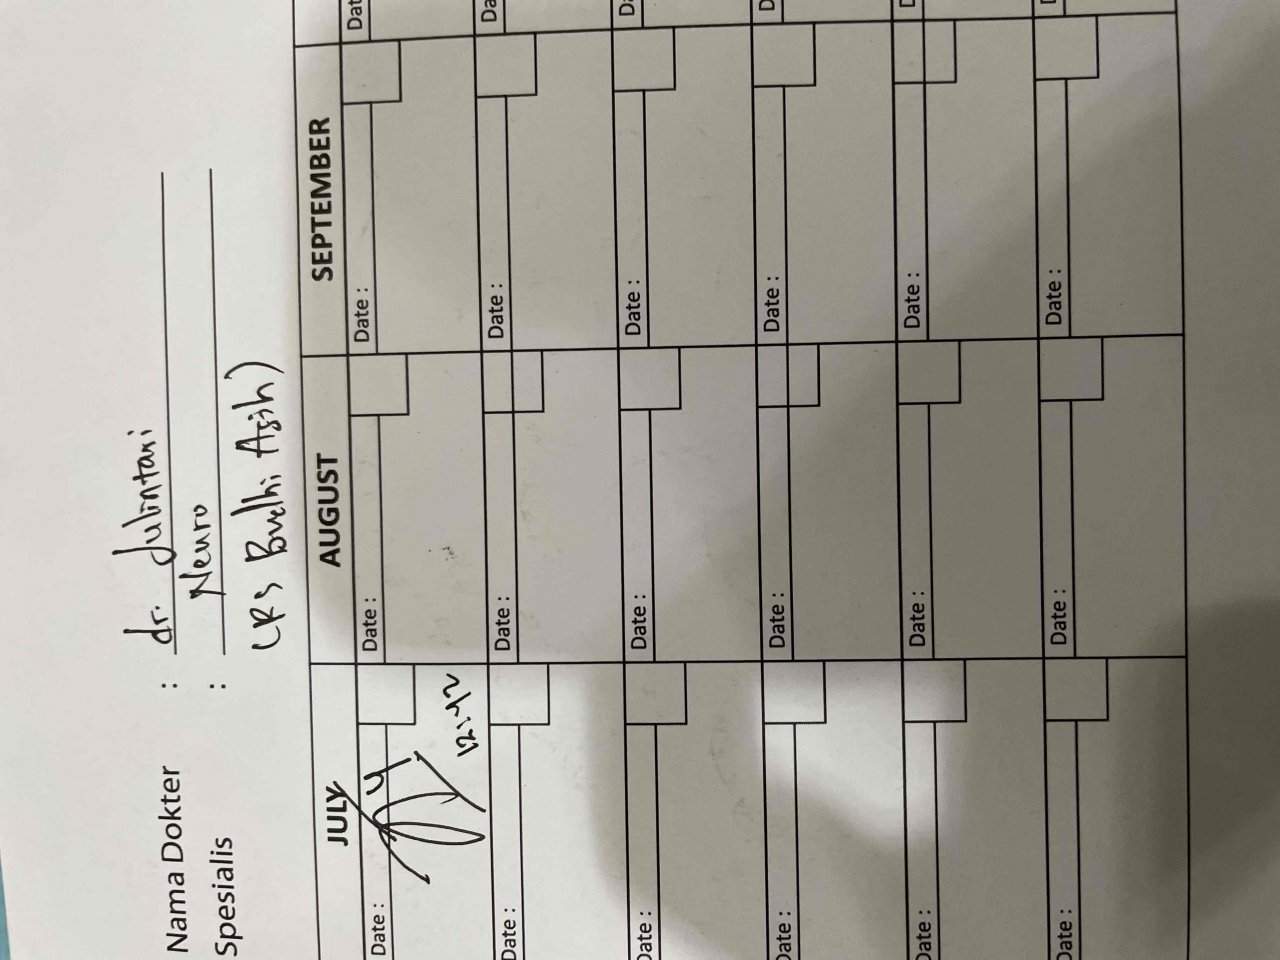 Nama Dokter : dr. Julintari
Spesialis : Neuro
(RS Budhi Asih)
JULY AUGUST SEPTEMBER
Date : Date : Date : Dat
12:42
Date : Date : Date : Da
Date : Date : Date : Da
Date : Date : Date : D
Date : Date : Date : D
Date : Date : Date : D